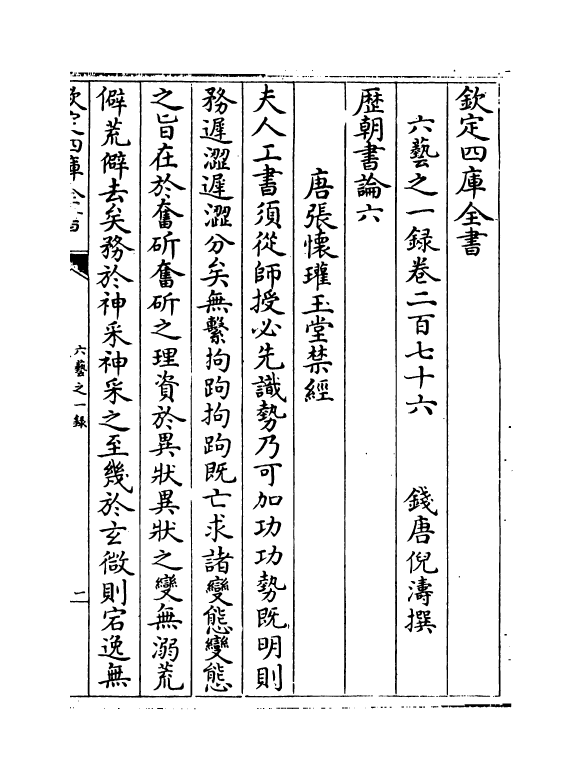 欽定四庫全書
六藝之一録卷二百七十六
錢唐倪濤撰
歷朝書論六
唐張懷瓘玉堂禁經
夫人工書須從師授必先識勢乃可加功功勢既明則
務遲澀遲澀分矣無繫拘跔拘跔既亡求諸變態變態
之旨在於奮斫奮斫之理資於異狀異狀之變無溺荒
僻荒僻去矣務於神采神采之至幾於玄微則宕逸無
欽定四庫全書
六藝之一録